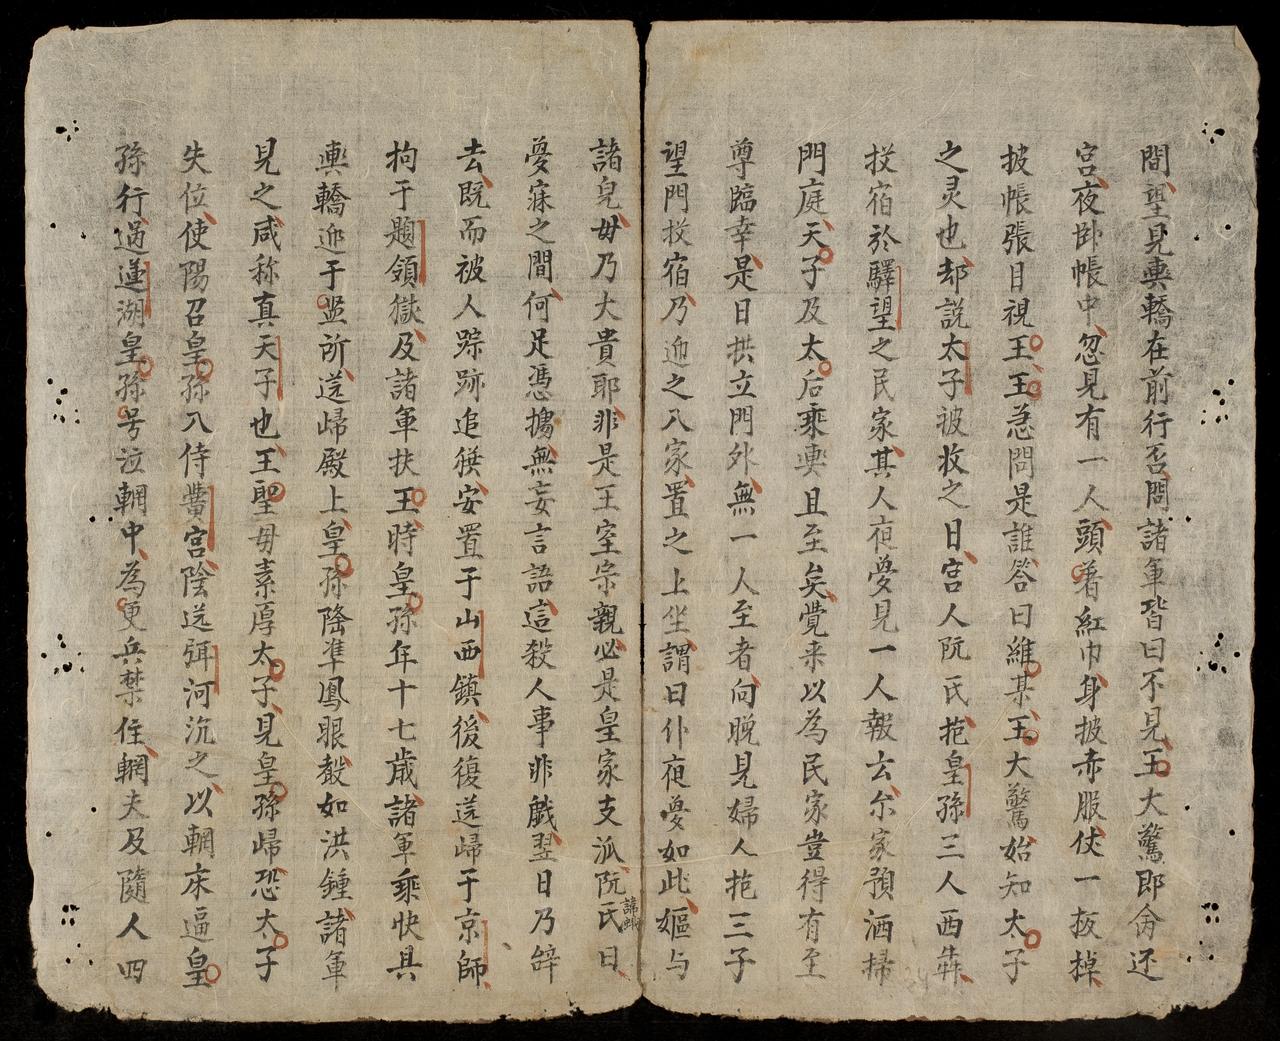 間望見輿轎在前行否問諸軍皆曰不見王大驚即令还
宮夜卧帳中忽見有一人頭着紅巾身披赤服仗一抜掉
披帳張目視王王急問是誰答曰維某王大驚始知太子
之灵也却説太子被收之日宮人阮氏抱皇孫三人西犇
投宿於驛望之民家其人夜夢見一人報云尔家預洒掃
門庭天子及太后乘輿且至矣覺来以為民家豈得有至
尊臨幸是日拱立門外無一人至者向晚見婦人抱三子
望門投宿乃迎之入家置之上坐謂曰仆夜夢如此嫗与
諸皃毋乃大貴耶非是王室宗親必是皇家支派阮氏曰
夢寐之間何足憑㨿無妄言語這殺人事非戱翌日乃辝
去既而被人踪跡追獲安置于山西鎮後復送歸于京師
拘于題領獄及諸軍扶王時皇孫年十七歳諸軍乘快具
輿轎迎于监所送歸殿上皇孫隆凖鳳眼声如洪鍾諸軍
見之咸称真天子也王聖母素厚太子見皇孫歸恐太子
失位使陽召皇孫入侍費宮陰送弭河沉之以輞床逼皇
孫行過蓮湖皇孫号泣輞中為更兵禁住輞夫及隨人四